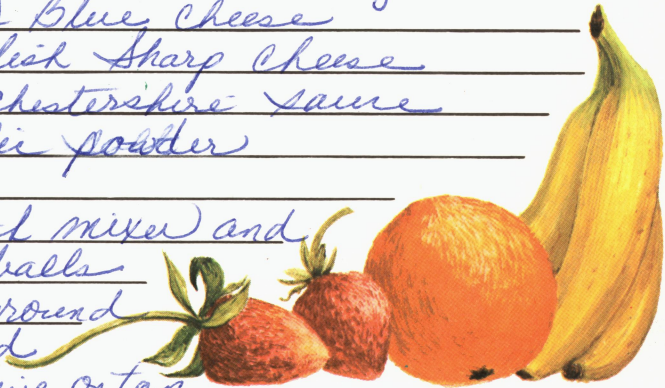 Blue cheese
lish Sharp cheese
chestershire sauce
powder
mixer and
balls
round
d
on top